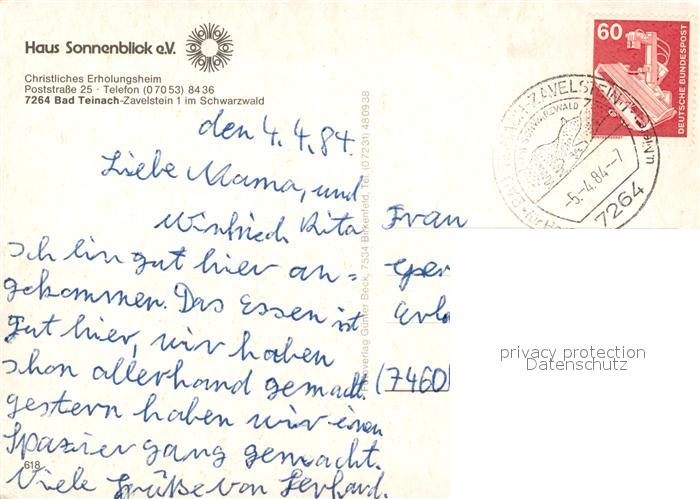 Haus Sonnenblick e.V.
Christliches Erholungsheim
Poststraße 25 · Telefon (07053) 8436
7264 Bad Teinach-Zavelstein 1 im Schwarzwald
den 4.4.84.
Liebe Mama, und
Winfried Rita
Ich bin gut hier an=
gekommen. Das Essen ist
gut hier, wir haben
schon allerhand gemacht.
gestern haben wir einen
Spaziergang gemacht.
Viele Grüße von Gerhard.
618
Günter Beck, 7534 Birkenfeld, Tel. (07231) 480938
Frau
(7460)
60
DEUTSCHE BUNDESPOST
-5.-4.84--7
7264
privacy protection
Datenschutz